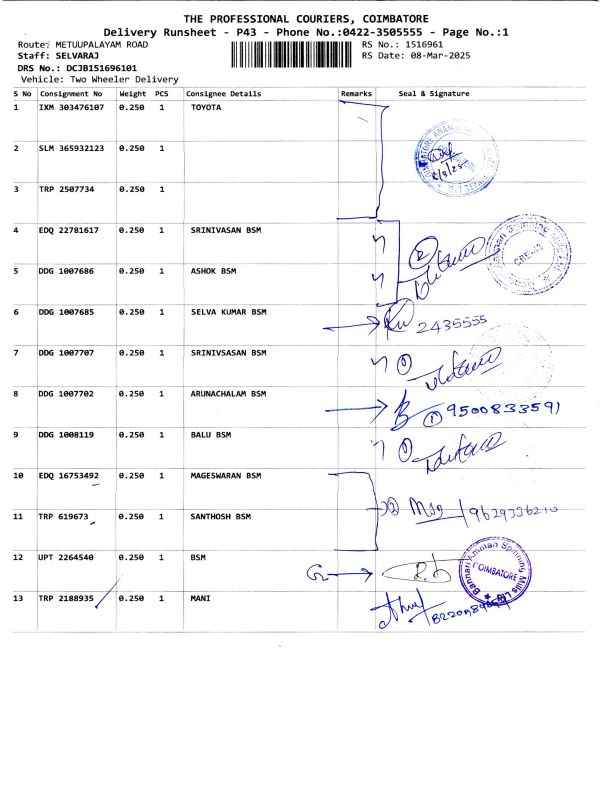 THE PROFESSIONAL COURIERS, COIMBATORE
Delivery Runsheet - P43 - Phone No.:0422-3505555 - Page No.:1
Route: METUUPALAYAM ROAD RS No.: 1516961
Staff: SELVARAJ RS Date: 08-Mar-2025
DRS No.: DCJB151696101
Vehicle: Two Wheeler Delivery
S No Consignment No Weight PCS Consignee Details Remarks Seal & Signature
1 IXM 303476107 0.250 1 TOYOTA
2 SLM 365932123 0.250 1
3 TRP 2507734 0.250 1
4 EDQ 22781617 0.250 1 SRINIVASAN BSM
5 DDG 1007686 0.250 1 ASHOK BSM
6 DDG 1007685 0.250 1 SELVA KUMAR BSM 2435555
7 DDG 1007707 0.250 1 SRINIVSASAN BSM
8 DDG 1007702 0.250 1 ARUNACHALAM BSM 9500833591
9 DDG 1008119 0.250 1 BALU BSM
10 EDQ 16753492 0.250 1 MAGESWARAN BSM
11 TRP 619673 0.250 1 SANTHOSH BSM 9629336210
12 UPT 2264540 0.250 1 BSM R.b Bannari Amman Spinning Mills COIMBATORE
13 TRP 2188935 0.250 1 MANI